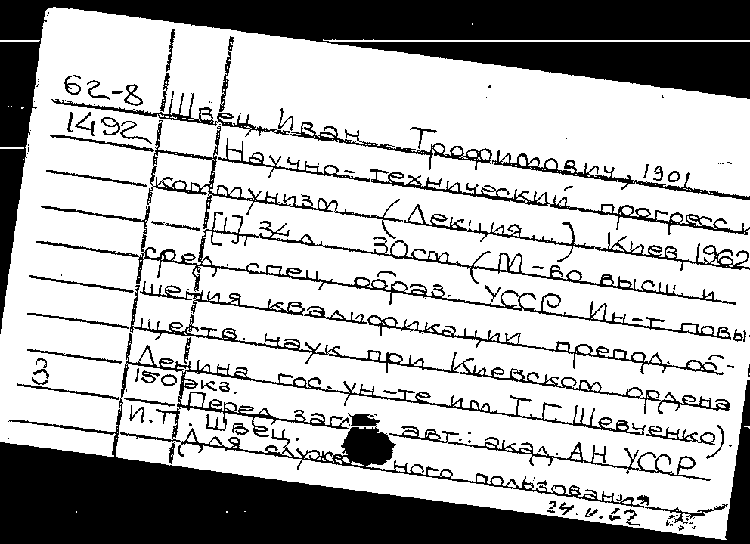 62-8
1492
Швец, Иван Трофимович, 1901
Научно-технический прогресс и
коммунизм. (Лекция...). Киев, 1962
[1], 34 л. 30см. (М-во высш. и
сред. спец. образ. УССР. Ин-т повы-
шения квалификации препод. об-
ществ. наук при Киевском ордена
Ленина гос. ун-те им. Т.Г. Шевченко).
3 150 экз.
Перед загл. авт.: акад. АН УССР
И.Т. Швец.
Для служебного пользования
24.V.62